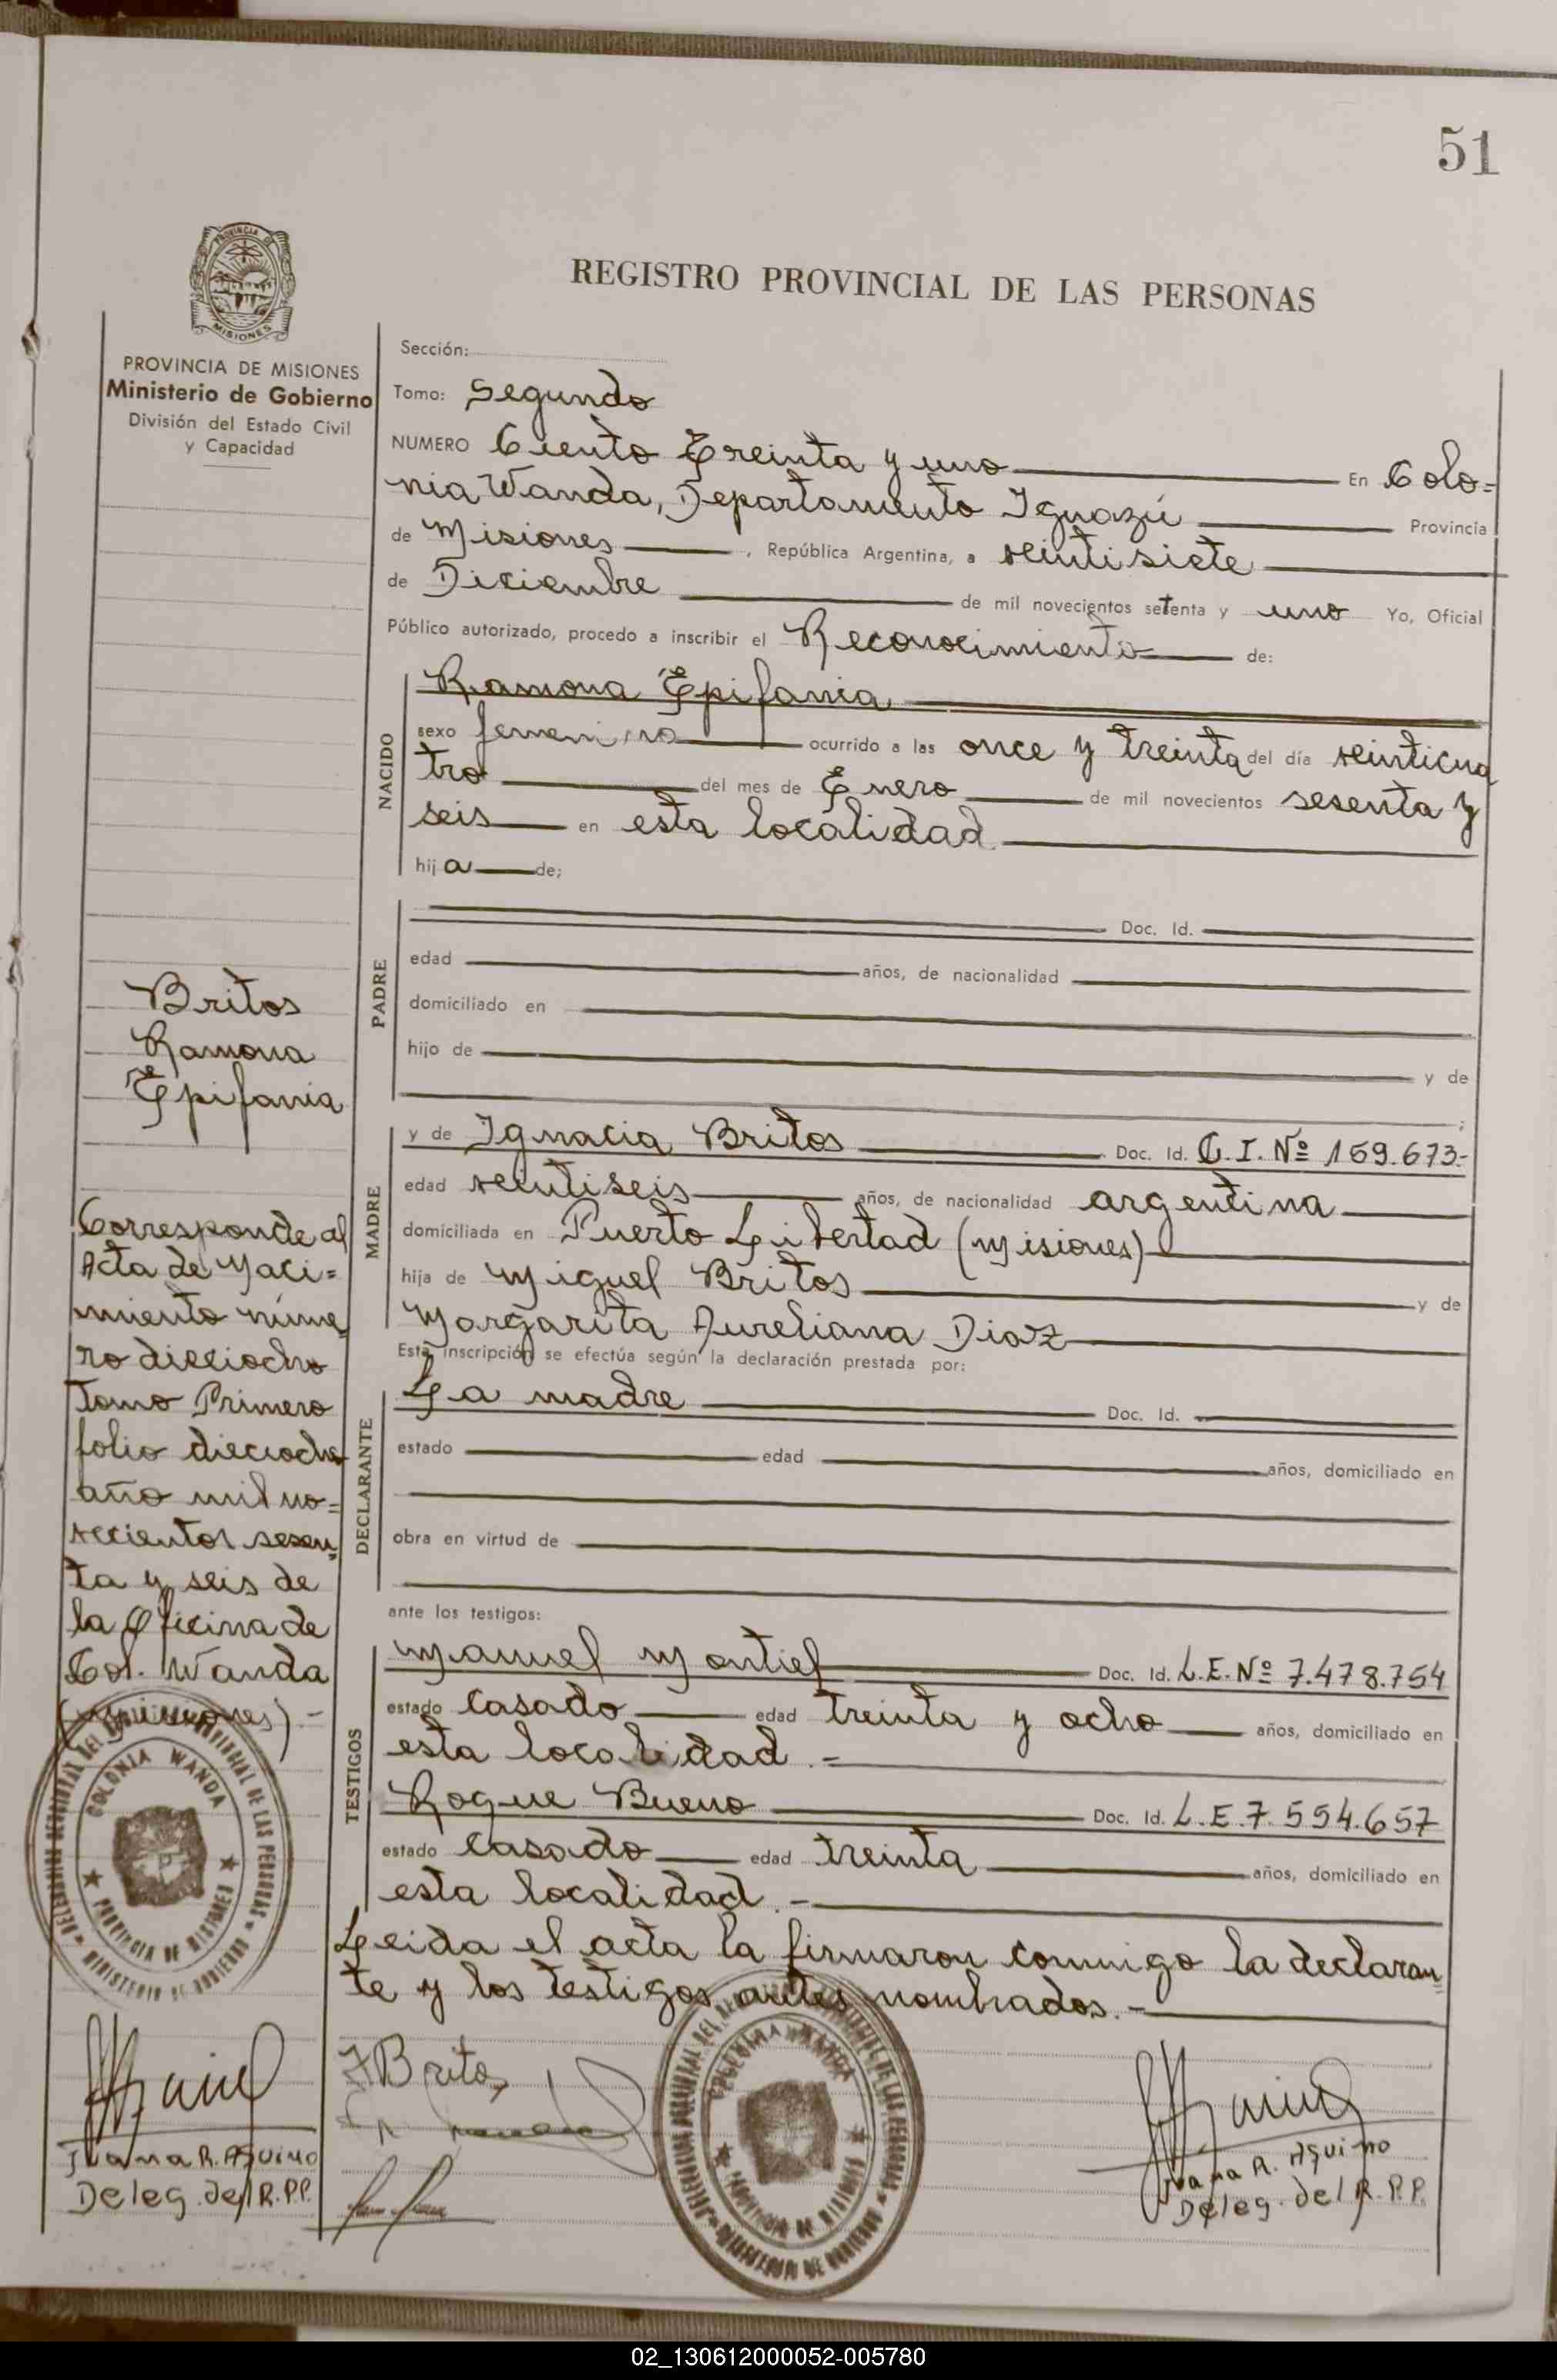 51
PROVINCIA DE
MISIONES
REGISTRO PROVINCIAL DE LAS PERSONAS
PROVINCIA DE MISIONES
Ministerio de Gobierno
División del Estado Civil
y Capacidad
Sección:
Tomo: Segundo
NUMERO Ciento Treinta y uno En Colo=
nia Wanda, Departamento Iguazú Provincia
de Misiones, República Argentina, a veintisiete
de Diciembre de mil novecientos setenta y uno Yo, Oficial
Público autorizado, procedo a inscribir el Reconocimiento de:
NACIDO
Ramona Epifania
sexo femenino ocurrido a las once y treinta del día veinticua
tro del mes de Enero de mil novecientos sesenta y
seis en esta localidad.
hija de;
PADRE
Doc. Id.
edad años, de nacionalidad
domiciliado en
hijo de y de
;
Britos
Ramona
Epifania
MADRE
y de Ignacia Britos Doc. Id. C.I. Nº 159.673.-
edad veintiseis años, de nacionalidad argentina
domiciliada en Puerto Libertad (Misiones)
hija de Miguel Britos y de
Margarita Aureliana Diaz
Esta inscripción se efectúa según la declaración prestada por:
DECLARANTE
La madre Doc. Id.
estado edad años, domiciliado en
obra en virtud de
ante los testigos:
TESTIGOS
Manuel Montiel Doc. Id. L.E. Nº 7.478.754
estado casado edad treinta y ocho años, domiciliado en
esta localidad.-
Roque Bueno Doc. Id. L.E. 7.554.657
estado casado edad treinta años, domiciliado en
esta localidad.-
Leida el acta la firmaron conmigo la declaran=
te y los testigos antes nombrados.-
Corresponde al
Acta de Naci=
miento núme=
ro dieciocho
Tomo Primero
folio dieciocho
año mil no=
vecientos sesen=
ta y seis de
la Oficina de
Col. Wanda
(Misiones)-
COLONIA WANDA
PROVINCIA DE MISIONES
MINISTERIO DE GOBIERNO
I Britos
COLONIA WANDA
PROVINCIA DE MISIONES
MINISTERIO DE GOBIERNO
Juana R. Aquino
Deleg. del R.P.P.
Juana R. Aquino
Deleg. del R.P.P.
02_130612000052-005780